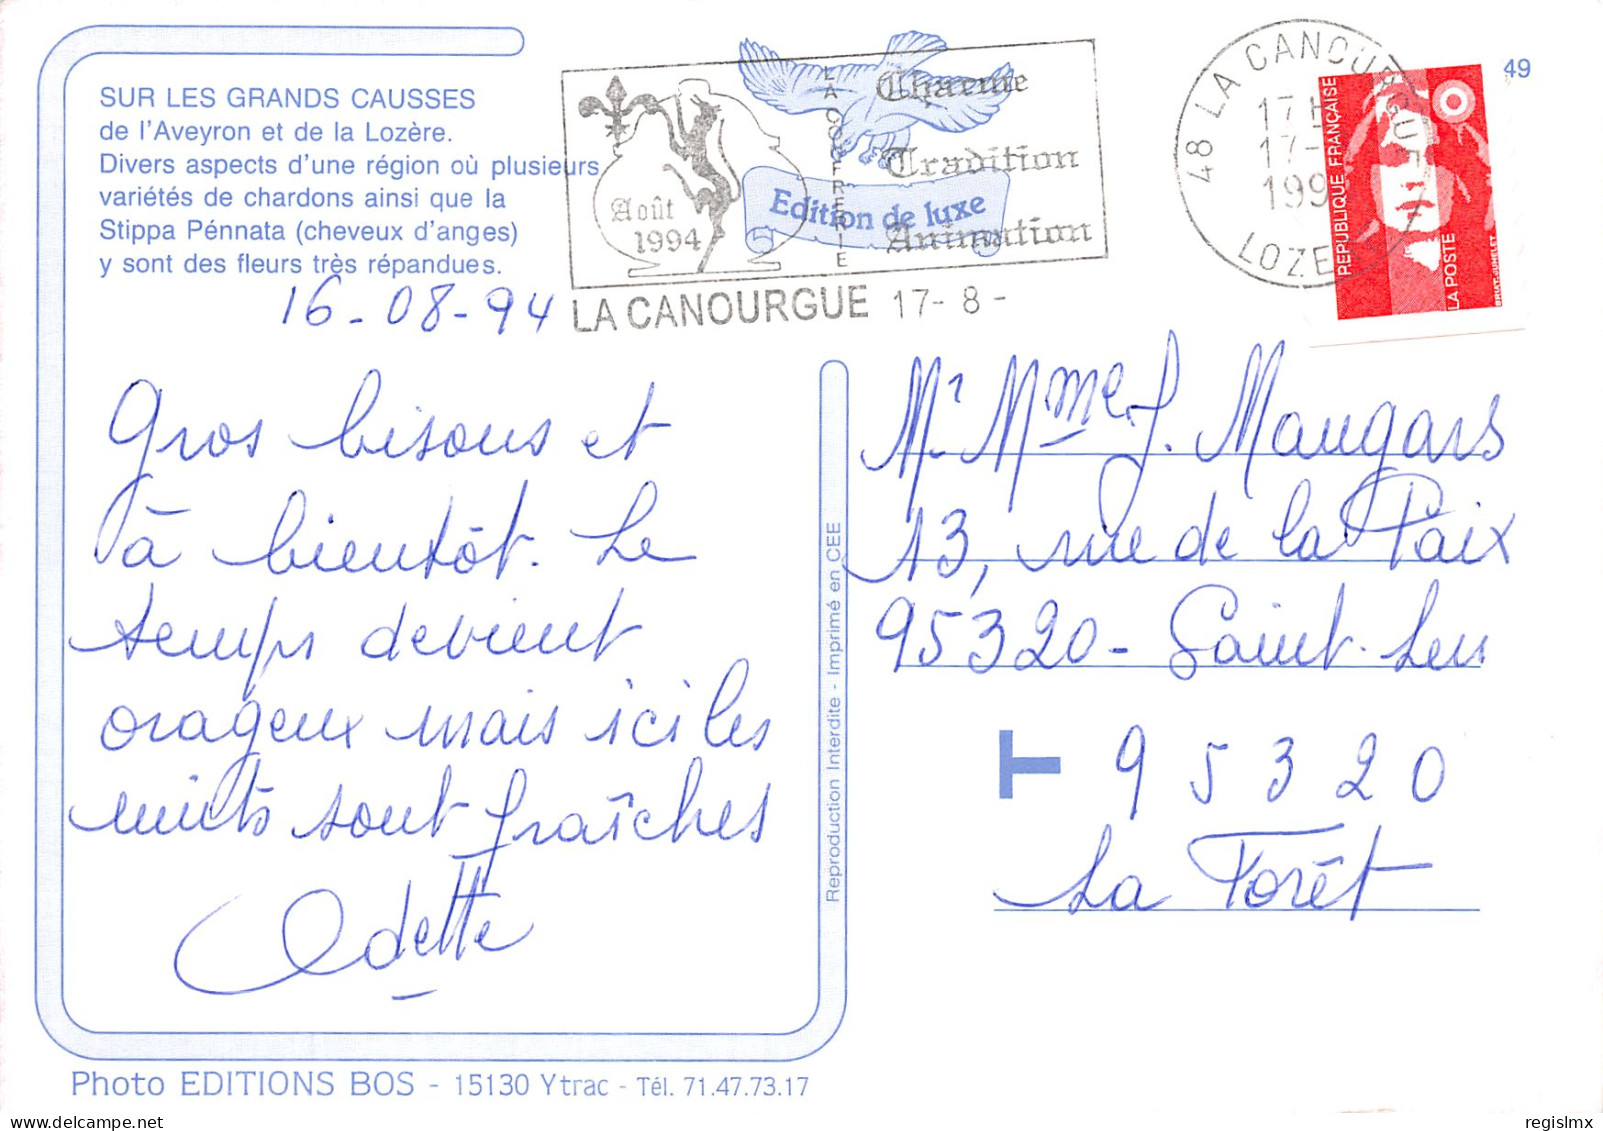 SUR LES GRANDS CAUSSES
de l'Aveyron et de la Lozère.
Divers aspects d'une région où plusieurs
variétés de chardons ainsi que la
Stippa Pénnata (cheveux d'anges)
y sont des fleurs très répandues.
16-08-94
Gros bisous et
à bientôt. Le
temps devient
orageux mais ici les
nuits sont fraîches
Odette
Photo EDITIONS BOS - 15130 Ytrac - Tél. 71.47.73.17
Août
1994
LA COUFRERIE
Charme
Tradition
Animation
Edition de luxe
LA CANOURGUE 17- 8 -
48 LA CANOURGUE
17 H
17-
199
LOZE
49
REPUBLIQUE FRANÇAISE
LA POSTE
BRIAT-JUMELET
Reproduction Interdite - Imprimé en CEE
Mr Mme J. Maugars
13, rue de la Paix
95320 - Saint-Leu
T 95320
La Forêt
regislmx